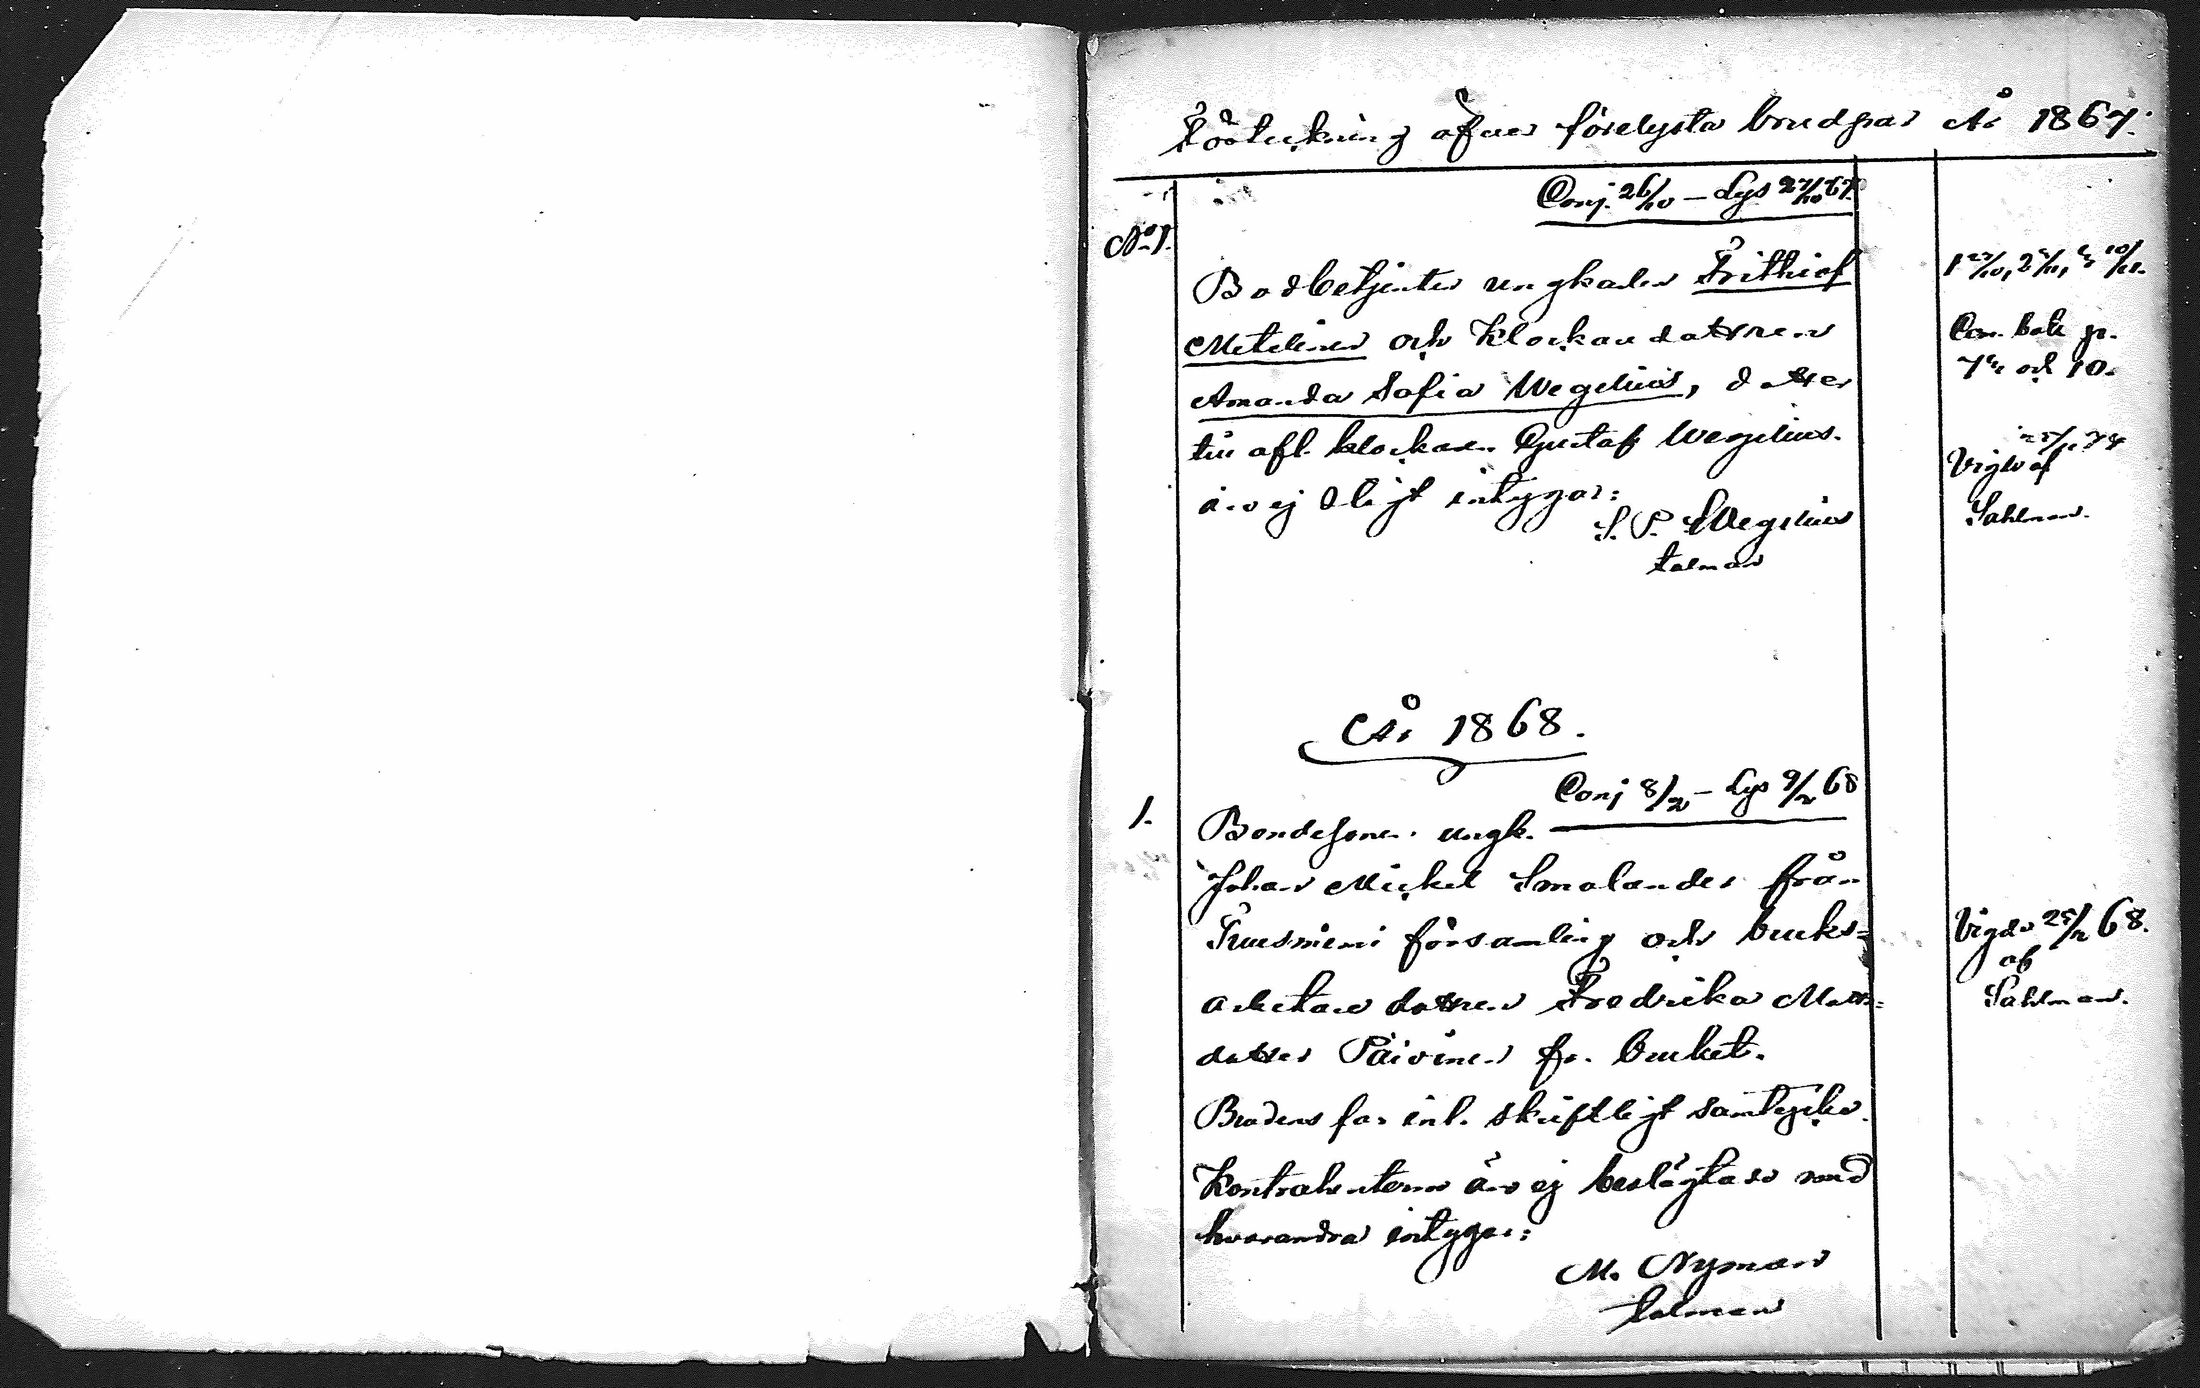 Förteckning öfver förelysta brudpar År 1867.
Conj. 26/10 – Lys 27/10 67.
No 1.
Bodbetjenten ungkarlen Frithiof
Metelinen och Klockaredottren
Amanda Sofia Wegelius, dotter
till afl. klockaren Gustaf Wegelius.
äro ej intygar:
S. P. Wegelius
talman
1 27/10, 2 3/11, 3 10/11.
Com. bok p.
och 10.
Vigde af
Sahlman.
År 1868.
Conj 8/2 – Lys 9/2 68
1.
Bondesonen ungk.
Johan Mickel Smolander från
Tuusniemi församling och bruks=
arbetare dottren Fredrika Matts=
dotter Päivinen fr. bruket.
Brudens far inl. skriftligt samtycke.
Kontrahenterne äro ej beslägtade med
hvarandra intygar:
M. Nyman
talman
Vigde 25/2 68.
af
Sahlman.